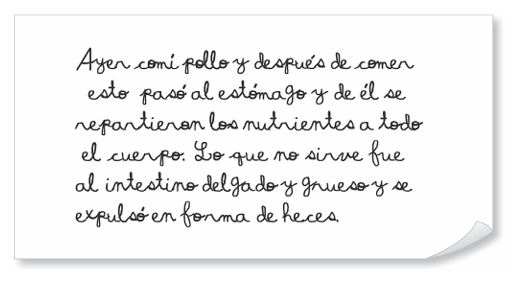 Ayer comí pollo y después de comer
esto pasó al estómago y de él se
repartieron los nutrientes a todo
el cuerpo. Lo que no sirve fue
al intestino delgado y grueso y se
expulsó en forma de heces.